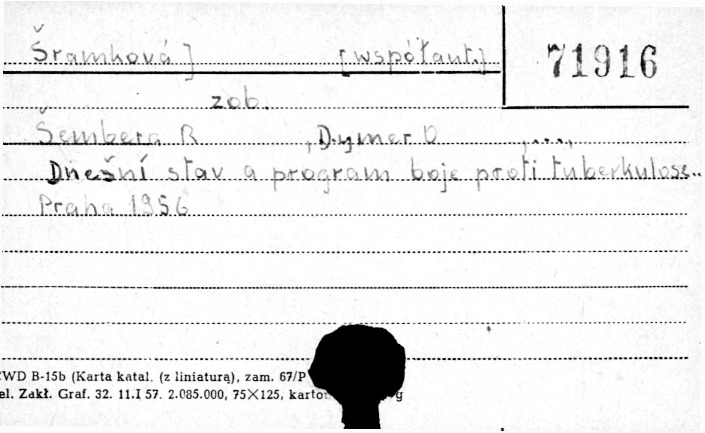 Šramková] [współaut.]
71916
zob.
Šembera R , Dymer O , ...,
Dnešní stav a program boje proti tuberkulose..
Praha 1956
CWD B-15b (Karta katal. (z liniaturą), zam. 67/P
el. Zakł. Graf. 32. 11.I 57. 2.085.000, 75×125, karto